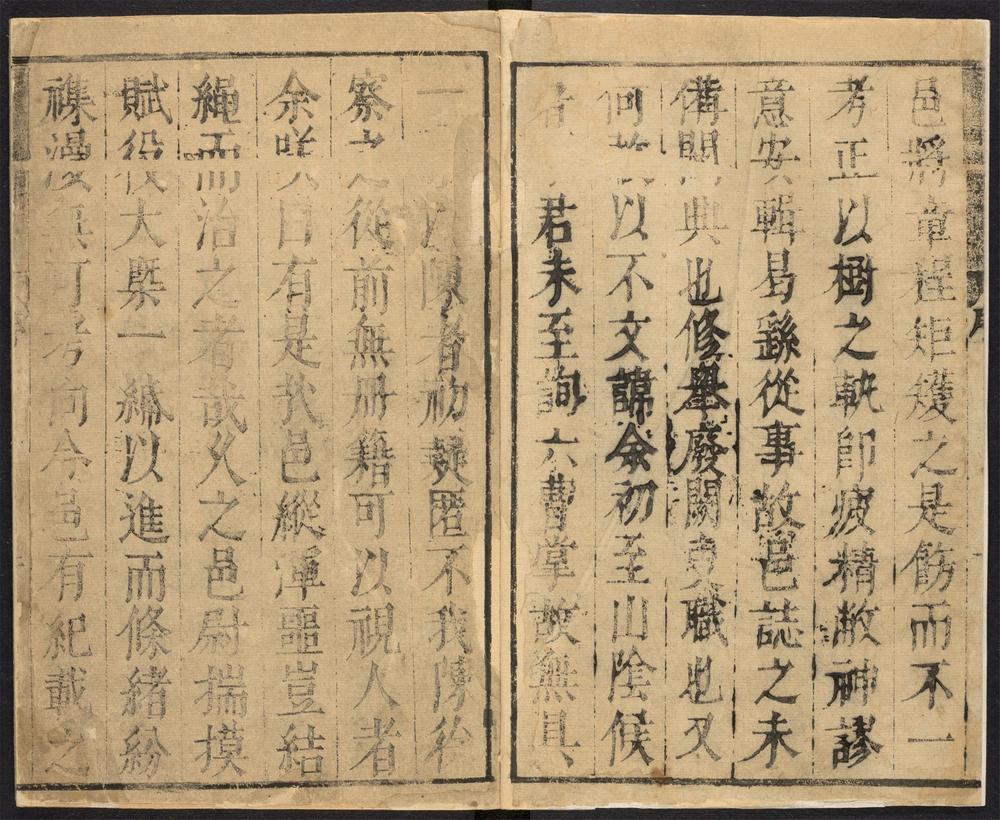 邑將章程矩矱之是飭而不一
考正以樹之軌即疲精敝神謬
意安輯曷繇從事故邑誌之未
備闕典也修舉廢闕吏職也又
何以不文諱余初至山陰候
者君未至詢六曹掌故無具
一以陳者初疑匿不我陳後
察之從前無册籍可以視人者
余咲曰有是哉邑縱渾噩豈結
繩而治之者哉久之邑尉揣摸
賦役大槩一編以進而條緒紛
襍漫無可考向令邑有紀載之